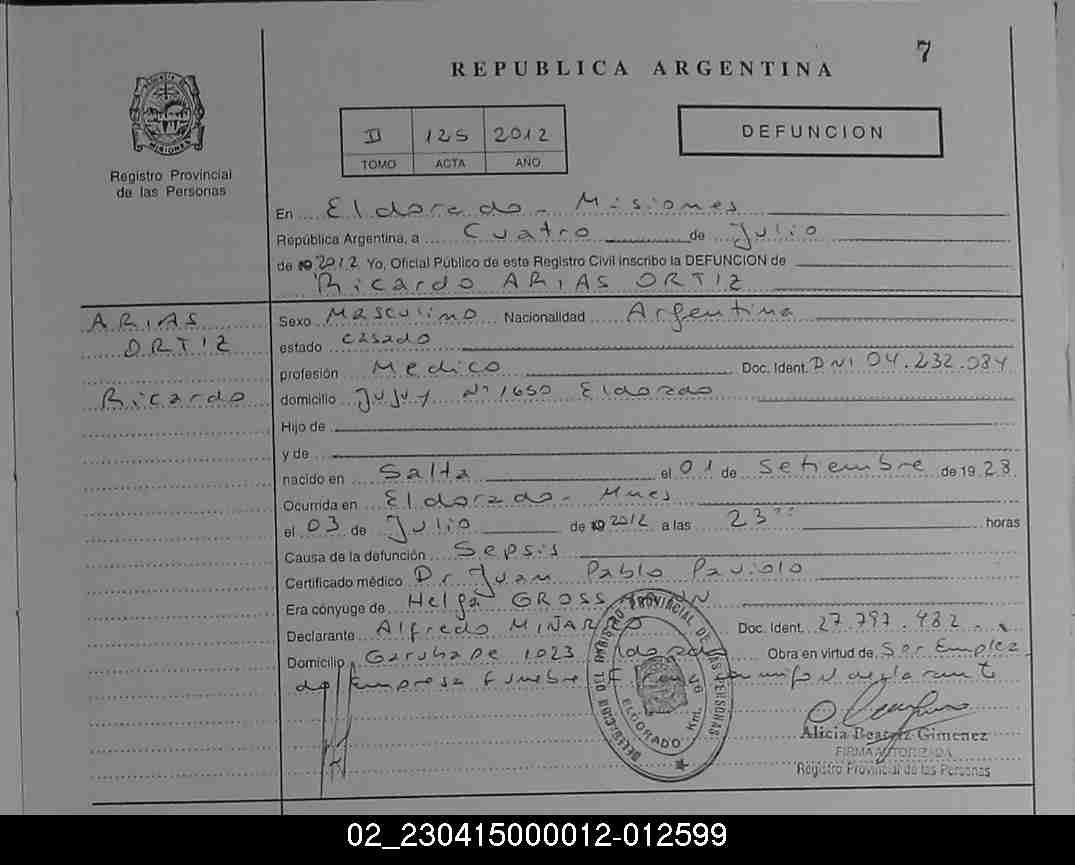 7
REPUBLICA ARGENTINA
II 125 2012
TOMO ACTA AÑO
DEFUNCION
PROVINCIA DE MISIONES
Registro Provincial
de las Personas
En Eldorado - Misiones
República Argentina, a Cuatro de Julio
de 2012 Yo, Oficial Público de este Registro Civil inscribo la DEFUNCION de
Ricardo ARIAS ORTIZ
ARIAS
ORTIZ
Ricardo
Sexo Masculino Nacionalidad Argentina
estado Casado
profesión Medico Doc. Ident. DNI 04.232.084
domicilio Jujuy Nº 1650 Eldorado
Hijo de
y de
nacido en Salta el 01 de Setiembre de 1928
Ocurrida en Eldorado - Mnes
el 03 de Julio de 2012 a las 23 horas
Causa de la defunción Sepsis
Certificado médico Dr. Juan Pablo Paviolo
Era cónyuge de Helga GROSS
Declarante Alfredo MIÑARRO Doc. Ident. 27.797.482
Domicilio Garuhape 1023 Eldorado Obra en virtud de Ser Emplea
do Empresa Funebre declarante
REGISTRO PROVINCIAL DE LAS PERSONAS
ELDORADO
Alicia Beatriz Gimenez
FIRMA AUTORIZADA
Registro Provincial de las Personas
02_230415000012-012599